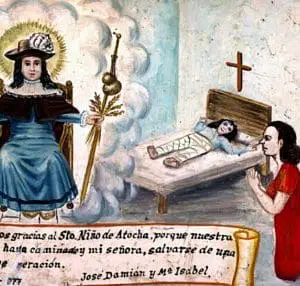 os gracias al Sto. Niño de Atocha, porque nuestra
haya caminado y mi señora, salvarse de una
eración.
José Damián y Mª Isabel.